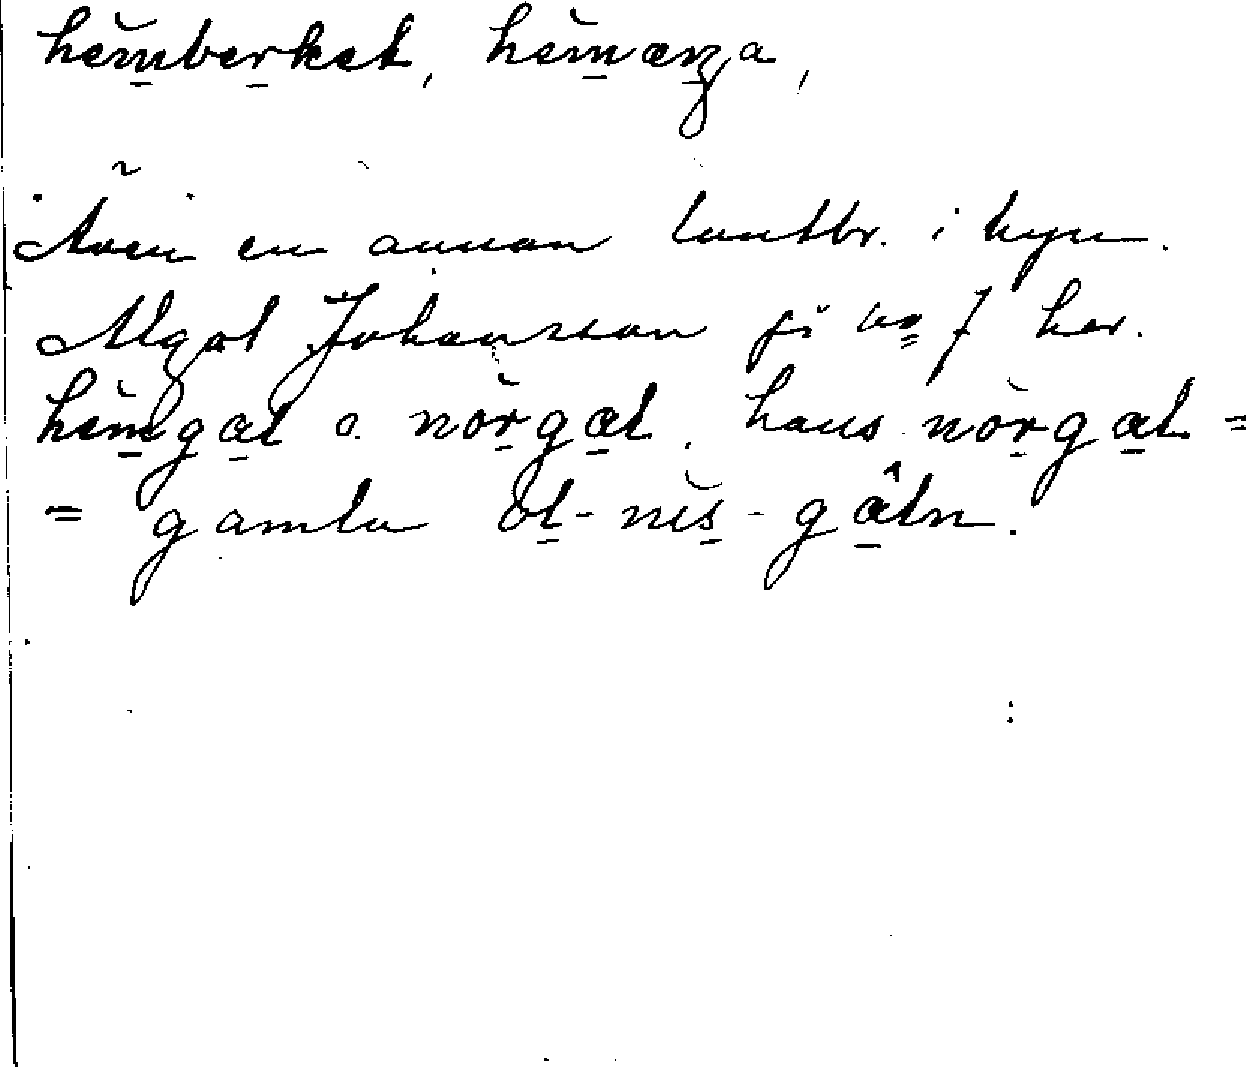 hèmberket, hèmæŋa,
Även en annan lantbr. i byn.
Algot Johansson på no 7 har.
hèmgat o. nòrgat. hans nòrgat =
= gamla ol-nìs-gâtn.